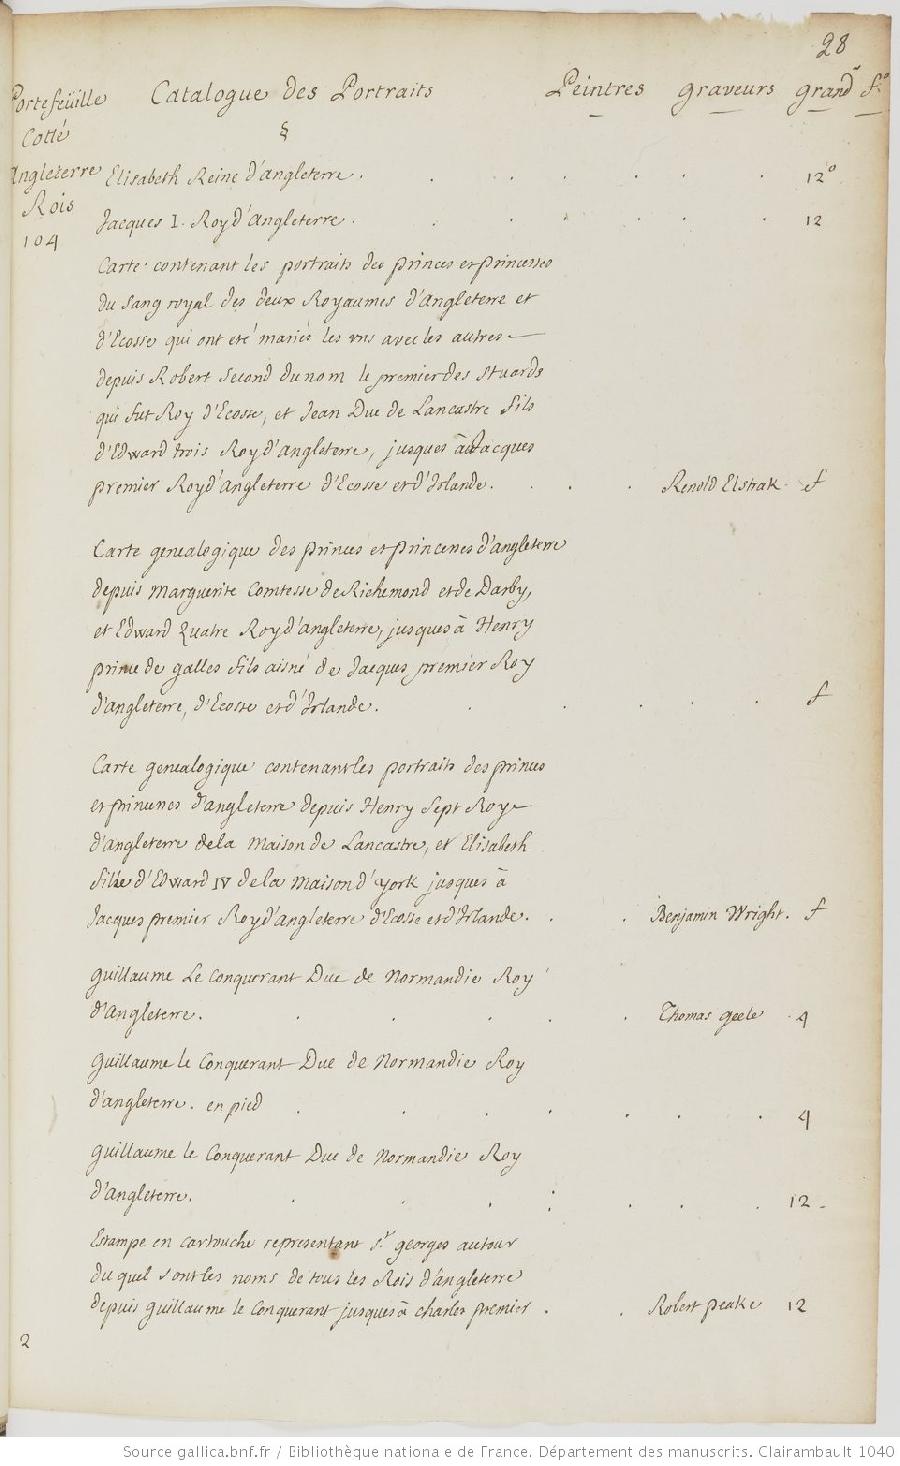 28
Portefeüille Catalogue des Portraits Peintres graveurs grandr fo
Cotté §
Angleterre Elisabeth Reine d'angleterre . 12o
Rois
Jacques I. Roy d'Angleterre . 12
104
Carte contenant les portraits des princes et princesses
du sang royal des deux Royaumes d'Angleterre et
d'Ecosse qui ont eté mariés les vns avec les autres —
depuis Robert second du nom le premier des Stuards
qui fut Roy d'Ecosse, et Jean Duc de Lancastre fils
d'Edward trois Roy d'angleterre, jusques à Jacques
premier Roy d'angleterre d'Ecosse et d'Irlande. Renold Elstrak . f
Carte genealogique des princes et princesses d'angleterre
depuis Marguerite Comtesse de Richemond et de Darby,
et Edward Quatre Roy d'angleterre, jusques à Henry
prince de galles fils aisné de Jacques premier Roy
d'angleterre, d'Ecosse et d'Irlande. f
Carte genealogique contenant les portraits des princes
et princesses d'angleterre depuis Henry Sept Roy
d'angleterre de la Maison de Lancastre, et Elisabesh
fille d'Edward IV de la Maison d'york jusques à
Jacques premier Roy d'angleterre d'Ecosse et d'Irlande. Benjamin Wright. f
Guillaume Le Conquerant Duc de Normandie Roy
d'Angleterre. Thomas geele . 4
Guillaume le Conquerant Duc de Normandie Roy
d'angleterre. en pied 4
Guillaume le Conquerant Duc de Normandie Roy
d'Angleterre. 12
Estampe en cartouche representant St georges autour
du quel sont les noms de tous les Rois d'angleterre
depuis guillaume le Conquerant jusques à charles premier . Robert peake 12
2
Source gallica.bnf.fr / Bibliothèque nationale de France. Département des manuscrits. Clairambault 1040